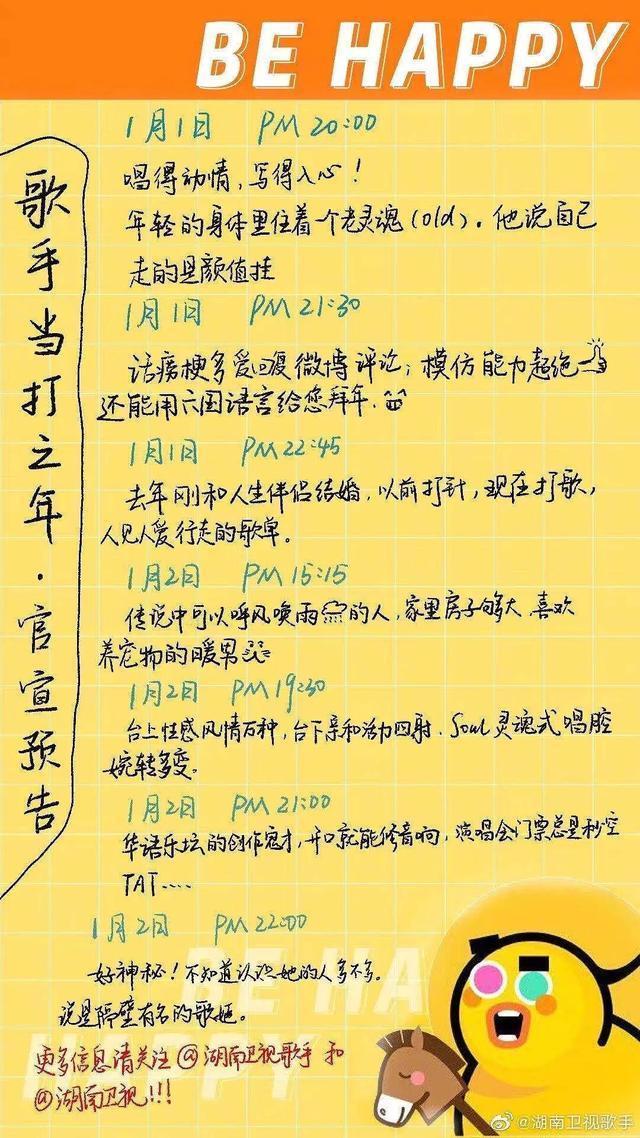 BE HAPPY
歌手当打之年·官宣预告
1月1日 PM 20:00
唱得动情，写得入心！
年轻的身体里住着一个老灵魂(old)．他说自己
走的是颜值挂
1月1日 PM 21:30
话痨梗多爱回复微博评论；模仿能力超绝
还能用六国语言给您拜年．
1月1日 PM 22:45
去年刚和人生伴侣结婚，以前打针，现在打歌，
人见人爱行走的歌单。
1月2日 PM 15:15
传说中可以呼风唤雨的人，家里房子够大 喜欢
养宠物的暖男
1月2日 PM 19:30
台上性感风情万种，台下亲和活力四射．Soul灵魂式唱腔
婉转多变。
1月2日 PM 21:00
华语乐坛的创作鬼才，开口就能修音响，演唱会门票总是秒空
TAT....
1月2日 PM 22:00
好神秘！不知道认识她的人多不多。
说是隔壁有名的歌姬。
BE HA
HAPPY
更多信息请关注@湖南卫视歌手 和
@湖南卫视!!!
@湖南卫视歌手